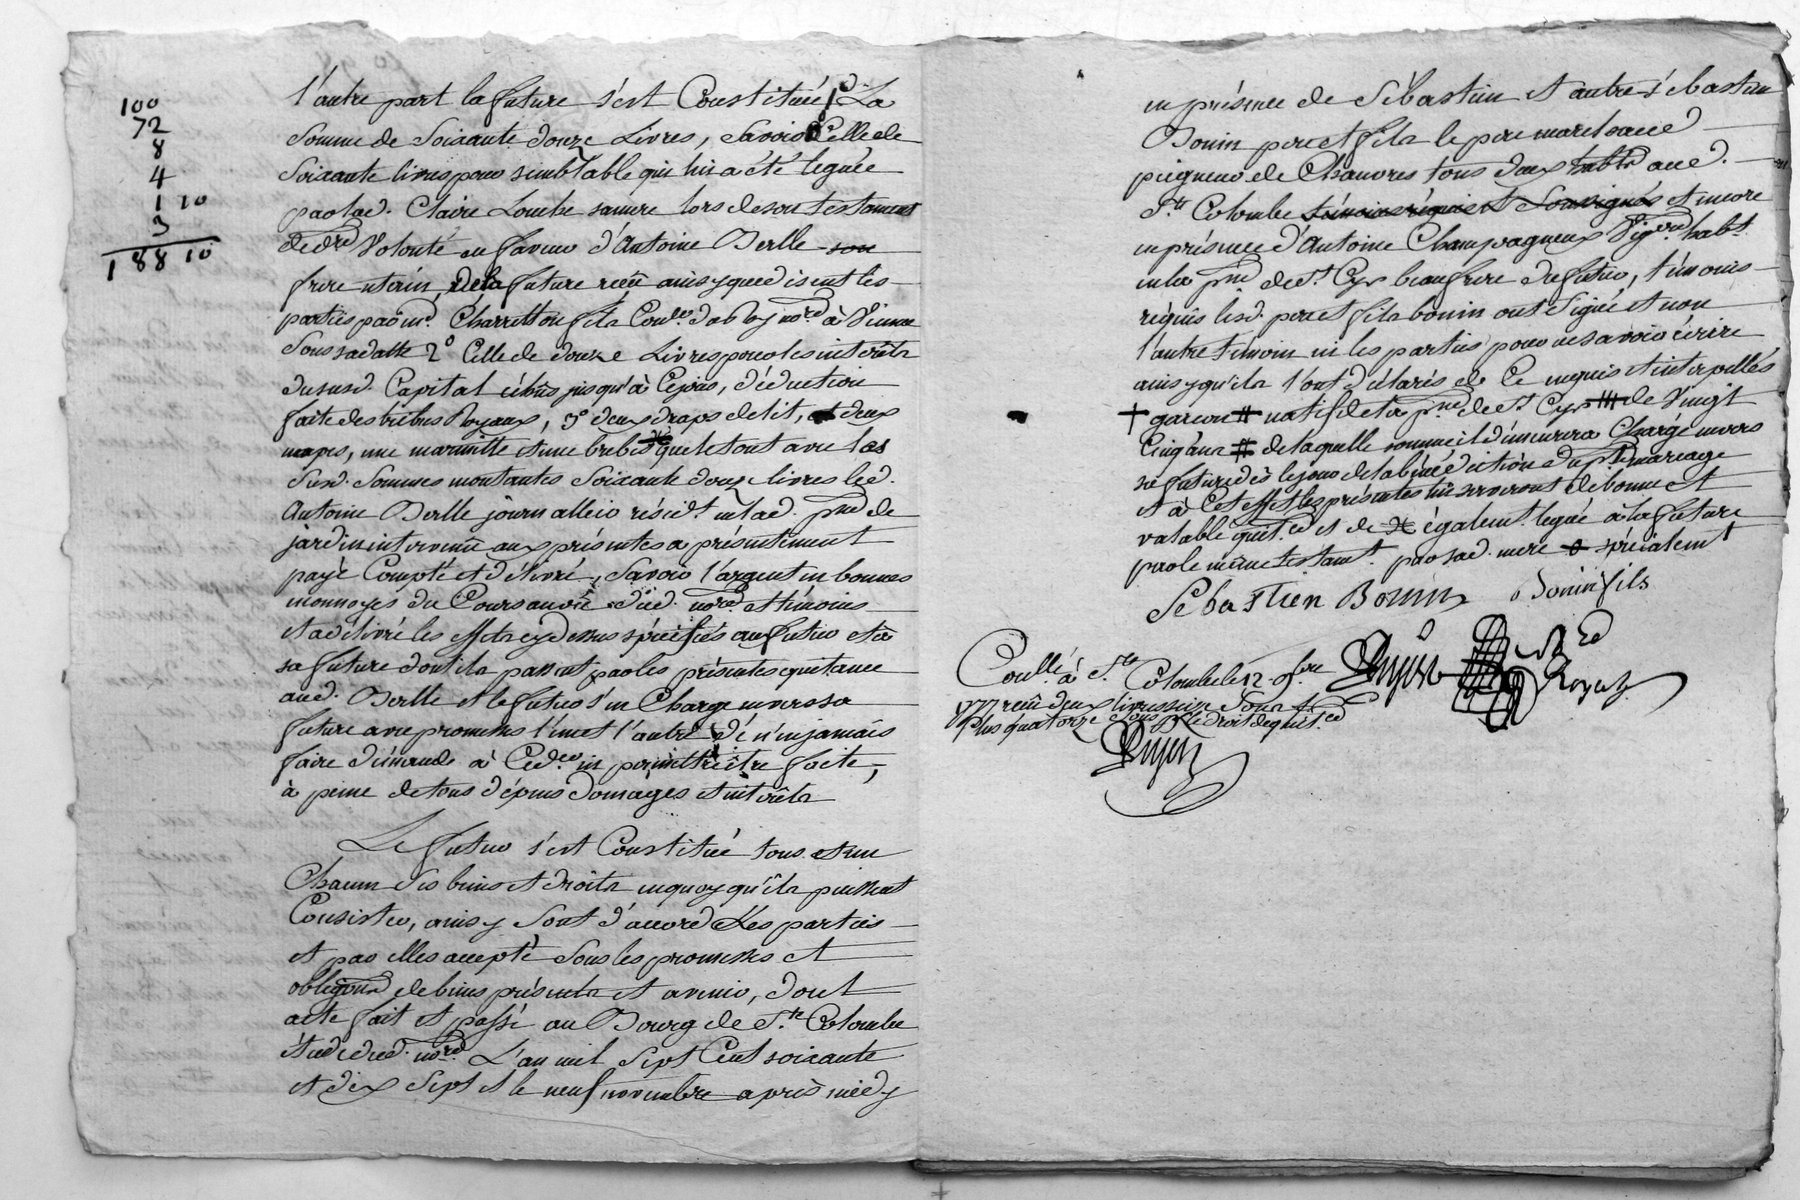 100
72
8
4
1 10
3
188 10
l'autre part la future s'est Constituée 1° La
somme de soixante douze Livres, savoir Celle de
soixante livres pour semblable qui lui a été leguée
par lad. Claire Lombe sa mere lors de son testament
de dre Volonté en faveur d'Antoine Berlle son
frere uterin, de la future reçu ainsy que disent les
parties par md. Charretton fils Conler du Roy nore à Vienne
sous sa datte 2° Celle de douze Livres pour les interêts
du susd. Capital échus jusqu'à Cejour, déduction
faite des tributs Royaux, 3° deux draps de lit, et deux
napes, une marmitte et une brebis que le tout avec les
susd. sommes montantes soixante douze livres led.
Antoine Berlle journallier résidt. en lad. psse de
jardin intervenu aux présentes a présentement
payé Compté et délivré, savoir l'argent en bonnes
monnoyes du Cours au vû dud. nore et témoins
et a délivré les effets cy dessus spécifiés au futur et à
sa future dont ils passent par les présentes quitance
aud. Berlle et le futur s'en Charge envers sa
future avec promesses l'un et l'autre de n'en jamais
faire demande à Ceder ni permettre être faite,
à peine de tous dépens domages et interêts
Le futur s'est Constitué tous et un
Chacun ses biens et droits en quoy qu'ils puissent
Consister, ainsy sont d'accord Les parties
et par elles accepté sous les promesses et
obligations de biens présents et avenir, dont
acte fait et passé au Bourg de Ste Colombe
étude dud. nore L'an mil sept Cent soixante
et dix sept et le neuf novembre après midy
en présence de Sébastien et autre Sébastien
Bonin pere et fils le pere marchand
peigneur de Chanvres tous deux habts aud.
Ste Colombe témoins réquis et soussignés et encore
en présence d'Antoine Champagneux Vigeron habt.
en la psse de St. Cyr beaufrere du futur, témoins
réquis lesd. pere et fils bonin ont signé et non
l'autre témoin ni les parties pour ne savoir écrire
ainsy qu'ils l'ont déclarés de Ce enquis et interpellés
+ garcon # natif de la psse de St. Cyr de Vingt
Cinq ans # de laquelle somme il demeurera Chargé envers
sa future dès le jour de la bénédiction du pt. mariage
et à Cet effet les présentes lui serviront de bonne et
valable quit.ce et de également legué à la future
par le même testamt. par sad. mere spécialemt
Sebastien Bonin Bonin fils
Conllé à Ste Colombe le 12 9bre
1777 reçu deux livres cinq sous
Plus quatorze sous pr le droit de quit.ce